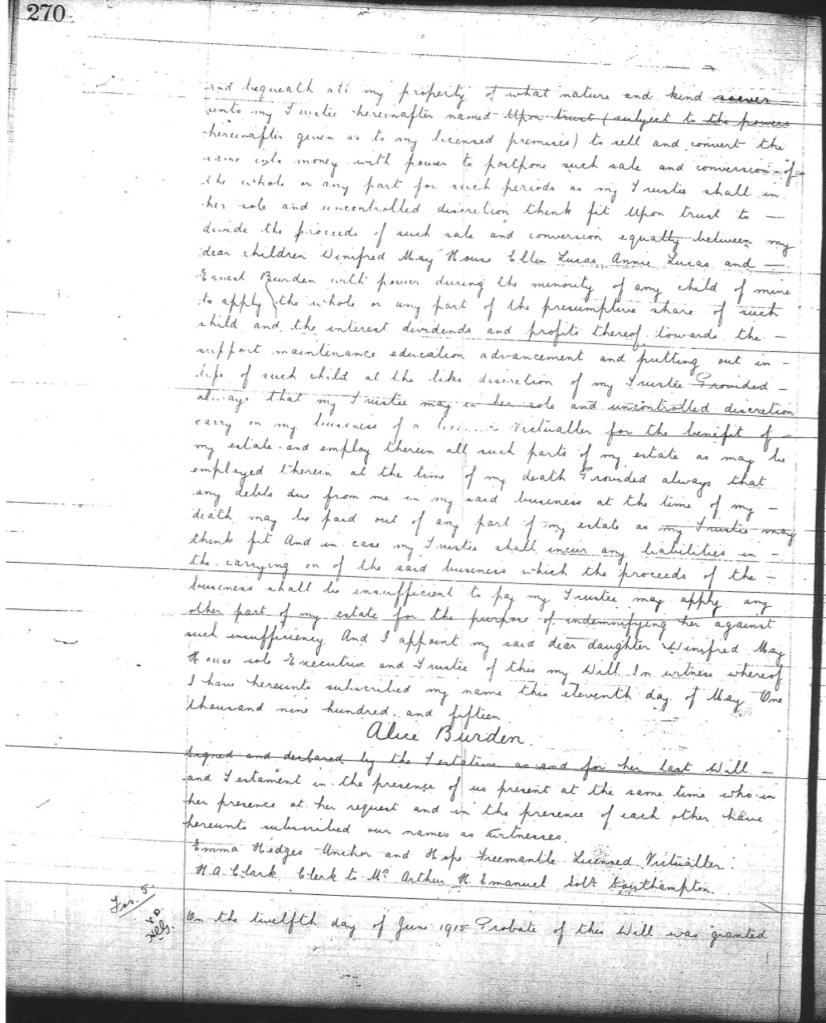 270
and bequeath all my property of what nature and kind soever
unto my Trustee hereinafter named Upon trust (subject to the powers
hereinafter given as to my licensed premises) to sell and convert the
same into money with power to postpone such sale and conversion of
the whole or any part for such periods as my Trustee shall in
her sole and uncontrolled discretion think fit Upon trust to —
divide the proceeds of such sale and conversion equally between my
dear children Winifred May House Ellen Lucas Annie Lucas and —
Ernest Burden with power during the minority of any child of mine
to apply the whole or any part of the presumptive share of such
child and the interest dividends and profits thereof towards the —
support maintenance education advancement and putting out in —
life of such child at the like discretion of my Trustee Provided —
always that my Trustee may in her sole and uncontrolled discretion
carry on my business of a licensed Victualler for the benefit of —
my estate and employ therein all such parts of my estate as may be
employed therein at the time of my death Provided always that
any debts due from me in my said business at the time of my —
death may be paid out of any part of my estate as my Trustee may
think fit And in case my Trustee shall incur any liabilities in —
the carrying on of the said business which the proceeds of the —
business shall be insufficient to pay my Trustee may apply any
other part of my estate for the purpose of indemnifying her against
such insufficiency And I appoint my said dear daughter Winifred May
House sole Executrix and Trustee of this my Will In witness whereof
I have hereunto subscribed my name this eleventh day of May One
thousand nine hundred and fifteen
Alice Burden.
Signed and declared by the Testatrix as and for her last Will —
and Testament in the presence of us present at the same time who in
her presence at her request and in the presence of each other have
hereunto subscribed our names as witnesses.
Emma Hedges Anchor and Hope Freemantle Licensed Victualler.
H. A. Clark Clerk to Mr Arthur H. Emanuel Solr Southampton.
On the twelfth day of June 1915 Probate of this Will was granted